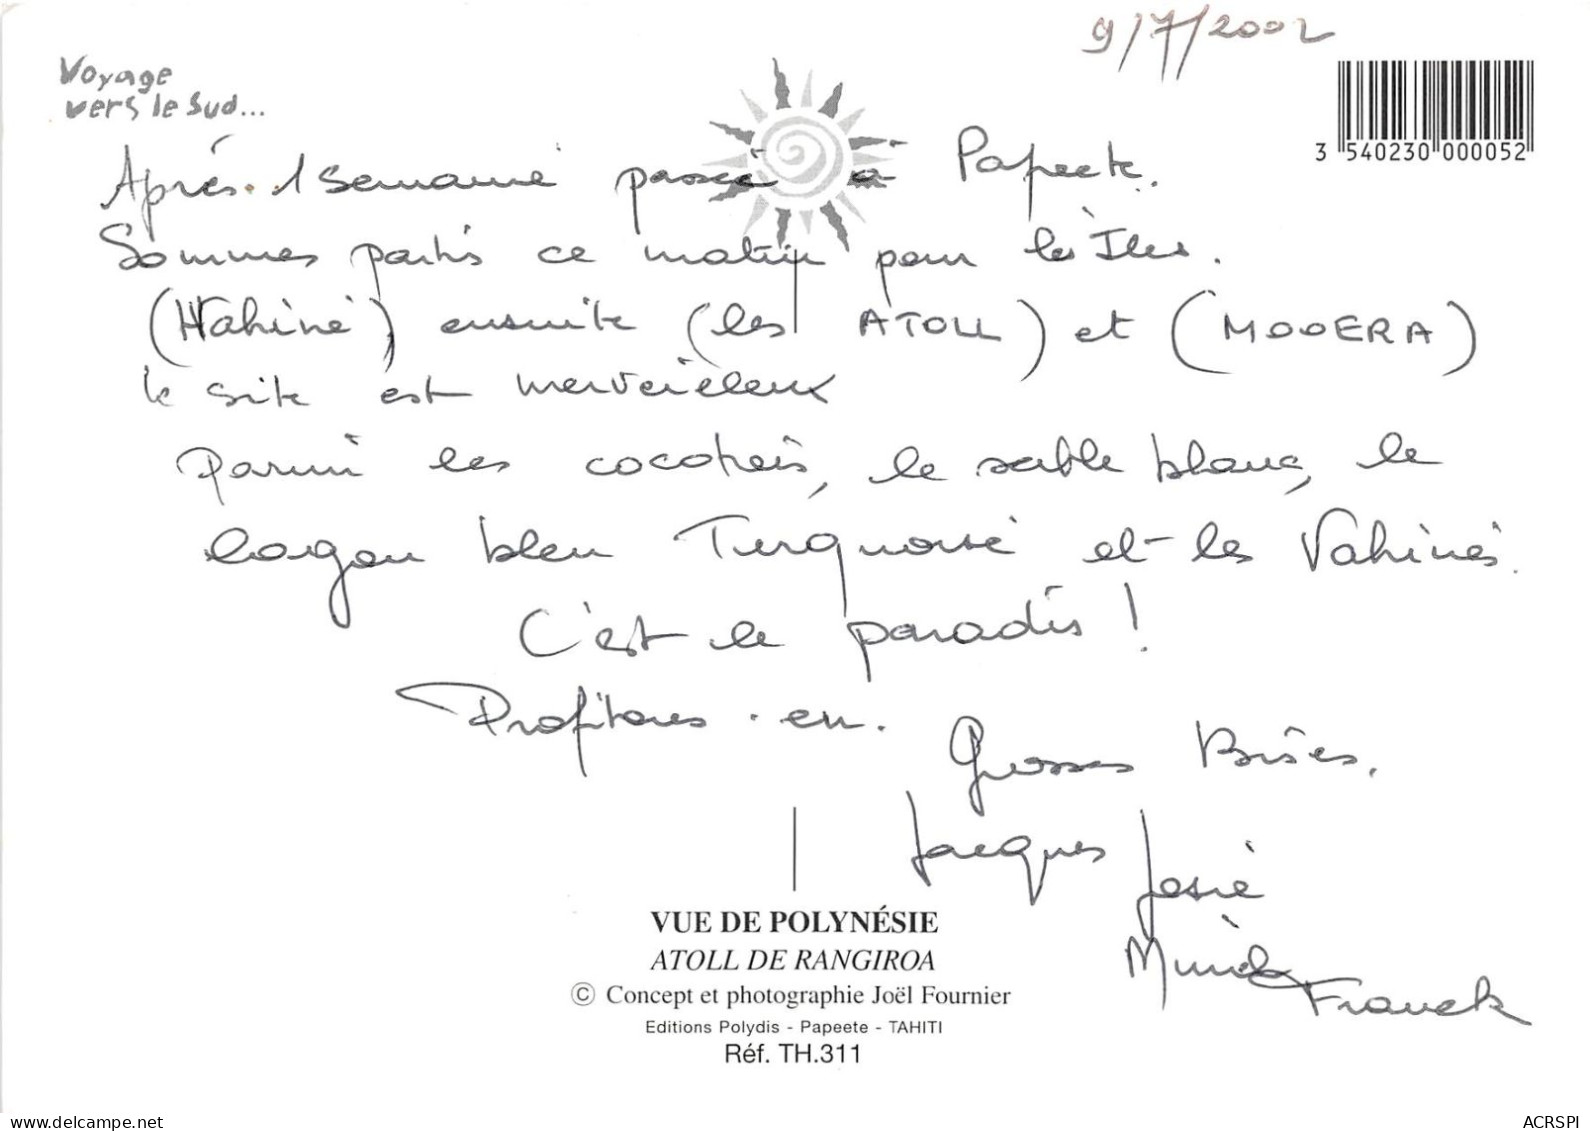 9/7/2002
Voyage
vers le Sud...
3 540230 000052
Après 1 semaine passée à Papeete.
Sommes partis ce matin pour les Iles.
(Hahiné) ensuite (les ATOLL) et (MOOERA)
le site est merveilleux
parmi les cocotiers, le sable blanc, le
lagon bleu Turquoise et les Vahinés.
C'est le paradis !
Profitons-en.
Grosses Bises.
Jacques Josié
Muriel
Franck
VUE DE POLYNÉSIE
ATOLL DE RANGIROA
© Concept et photographie Joël Fournier
Editions Polydis - Papeete - TAHITI
Réf. TH.311
ACRSPI